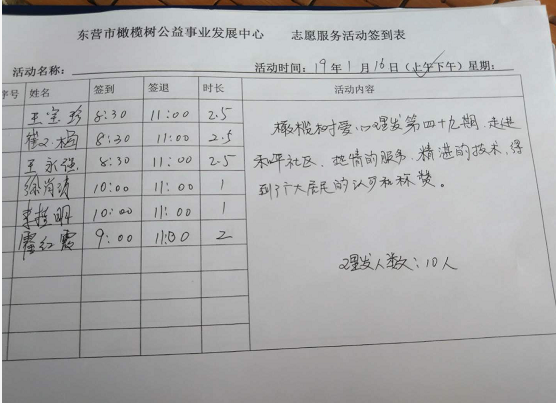 东营市橄榄树公益事业发展中心 志愿服务活动签到表
活动名称: 活动时间: 19年 1月 16日 (上午下午) 星期:
序号 姓名 签到 签退 时长 活动内容
王宗珍 8:30 11:00 2.5
崔 8:30 11:00 2.5
王永强 8:30 11:00 2.5
徐尚涛 10:00 11:00 1
李 明 10:00 11:00 1
霍红霞 9:00 11:00 2
橄榄树爱心理发第四十九期,走进
和平社区、热情的服务、精进的技术,得
到了广大居民的认可和称赞。
理发人数:10人